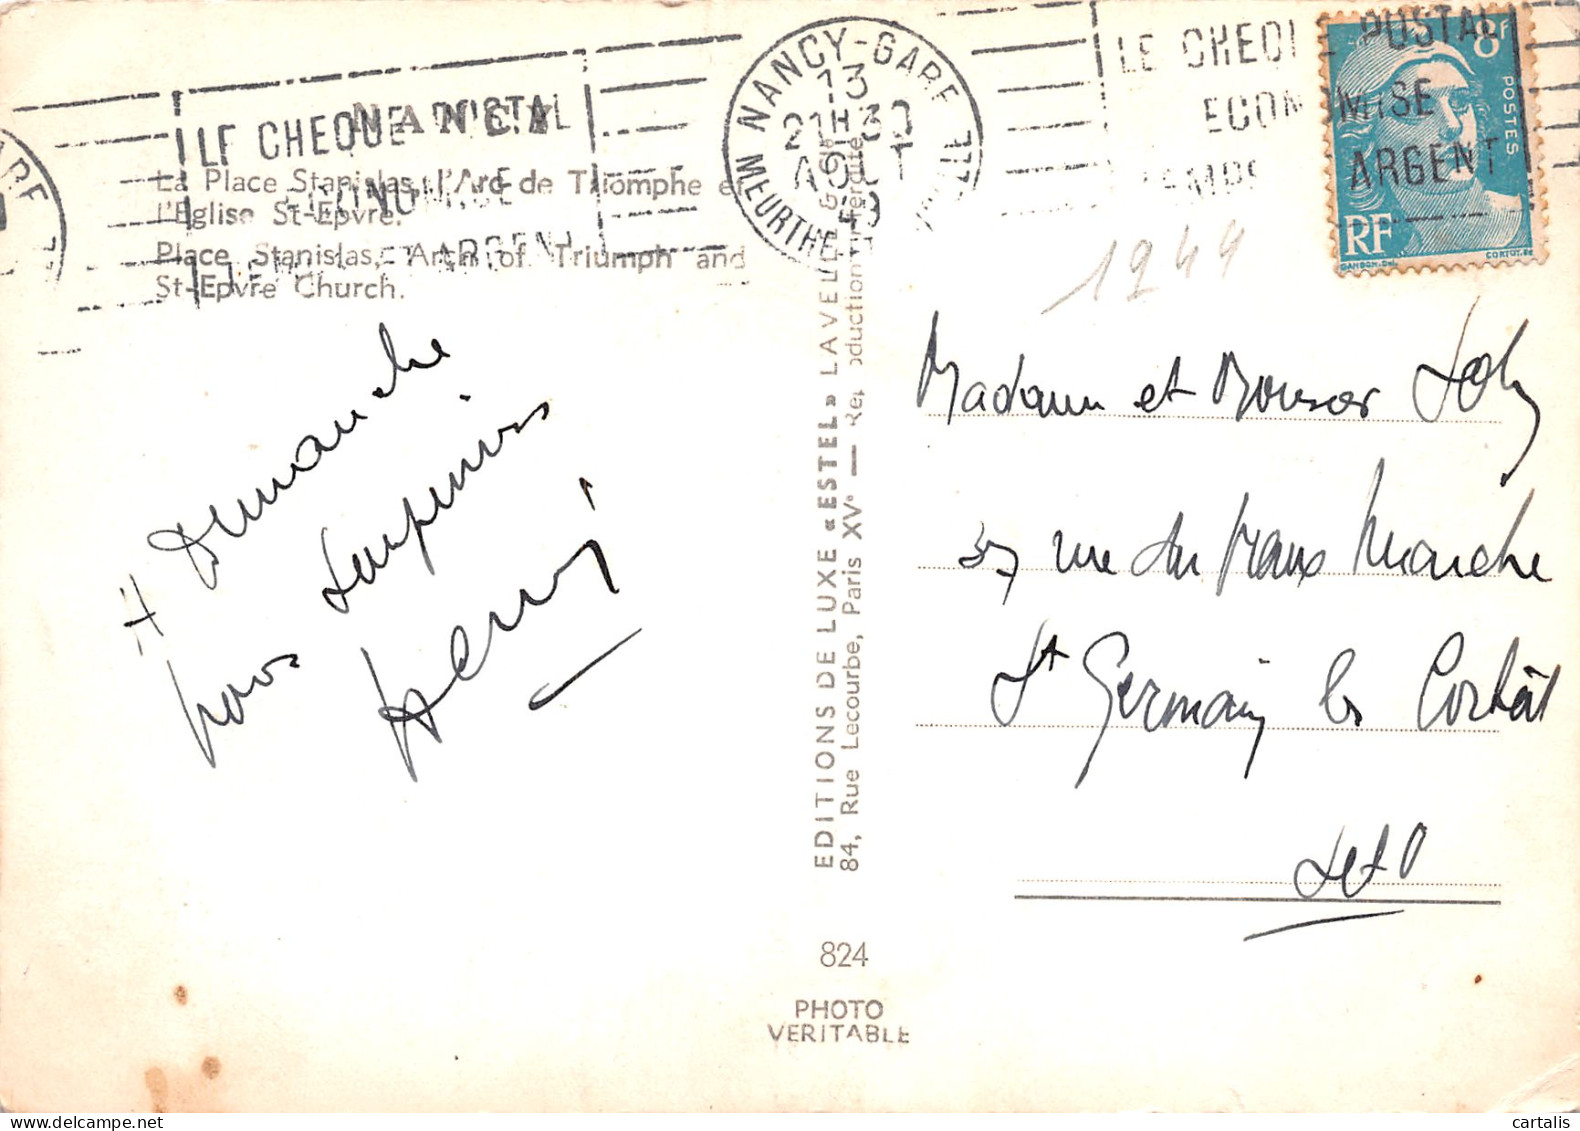 NANCY
La Place Stanislas, l'Arc de Triomphe et
l'Eglise St-Epvre.
Place Stanislas, Arch of Triumph and
St-Epvre Church.
LE CHEQUE POSTAL
ECONOMISE
TEMPS ET ARGENT
NANCY-GARE
13
21H30
AOUT
49
MEURTHE
LE CHEQUE POSTAL
ECONOMISE
TEMPS ARGENT
8F
POSTES
RF
GANDON.DEL.
1949
Demanche
nous
Henri
EDITIONS DE LUXE «ESTEL» LAVELLE
84, Rue Lecourbe, Paris XVe — Reproduction interdite
824
PHOTO
VERITABLE
Madame et Joly
37 rue du Vieux Marche
St Germain les Corbeil
S et O
cartalis